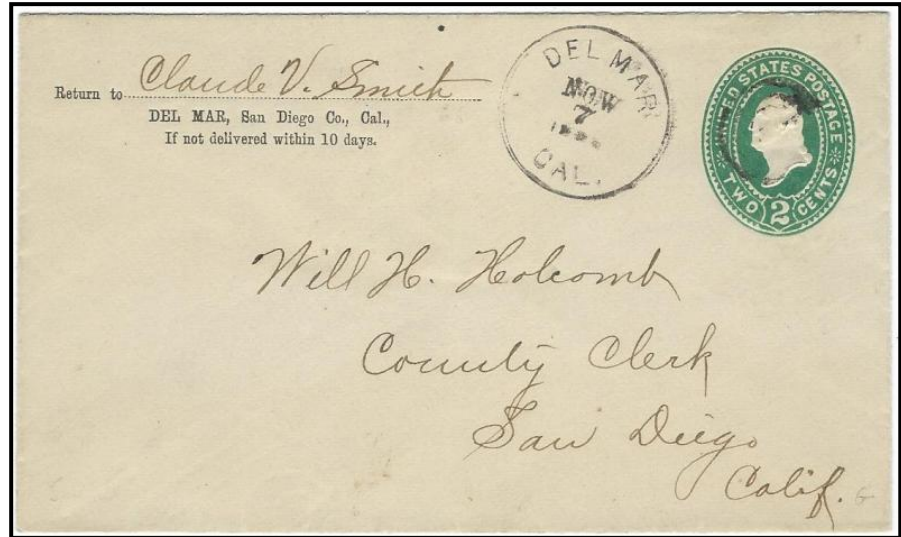 Return to Claude V. Smith
DEL MAR, San Diego Co., Cal.,
If not delivered within 10 days.
DEL MAR
NOV
7
CAL.
UNITED STATES POSTAGE
TWO 2 CENTS
Will H. Holcomb
County Clerk
San Diego
Calif.